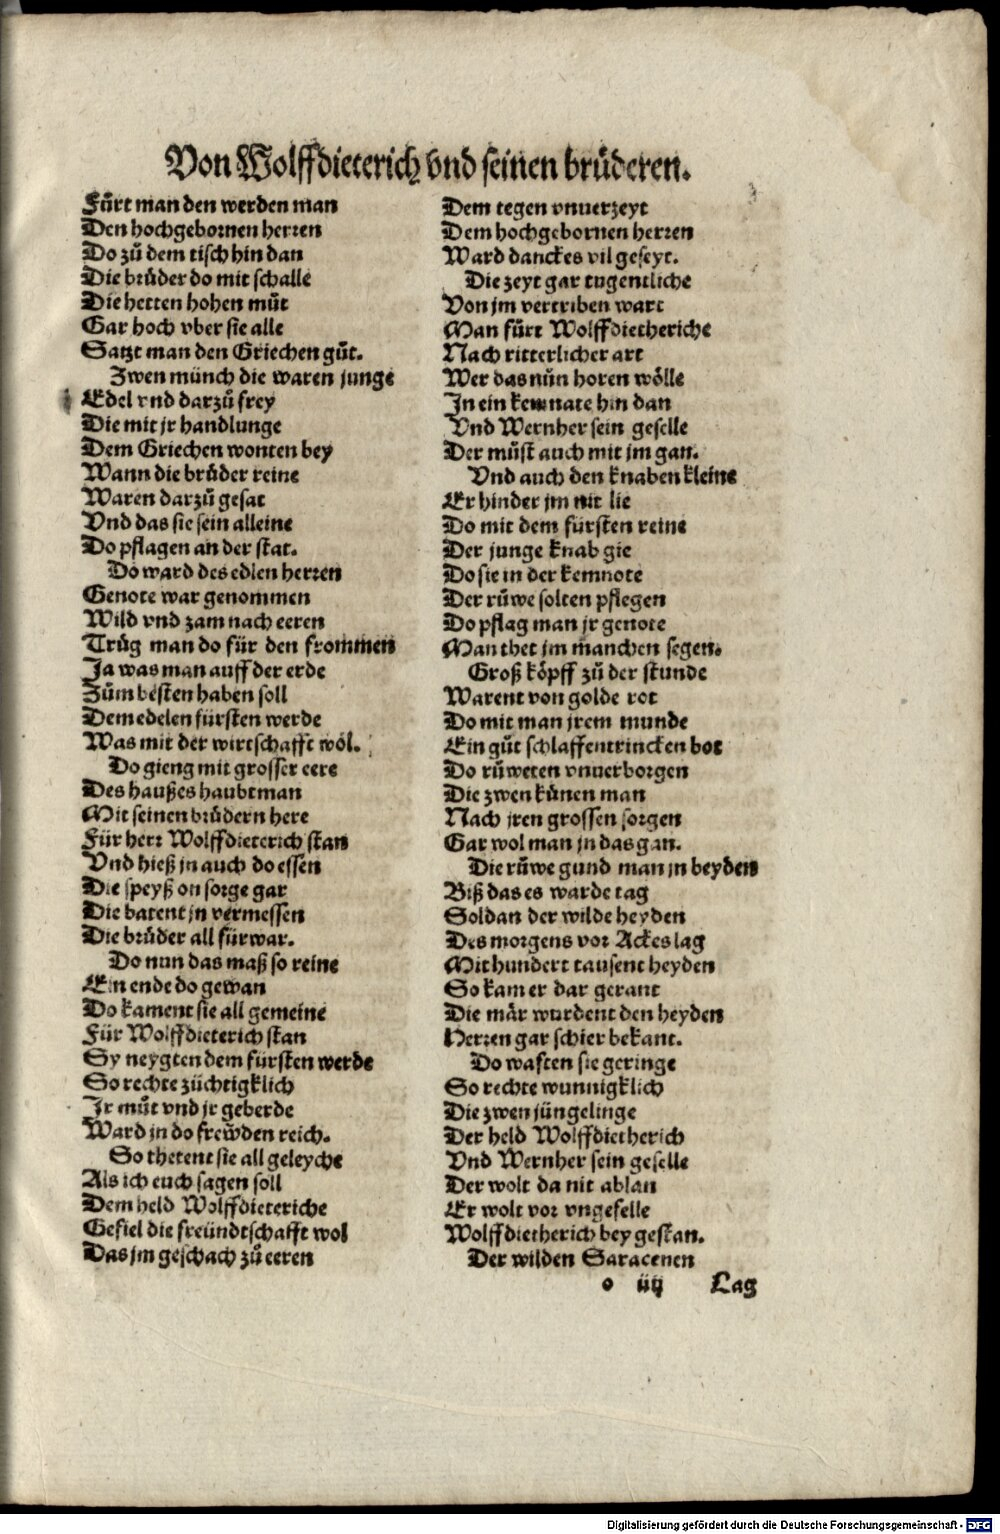 Von Wolffdieterich vnd seinen brüderen.
Fürt man den werden man
Den hochgebornen herren
Do zů dem tisch hin dan
Die brüder do mit schalle
Die hetten hohen můt
Gar hoch vber sie alle
Satzt man den Griechen gůt.
Zwen münch die waren junge
Edel vnd darzů frey
Die mit jr handlunge
Dem Griechen wonten bey
Wann die brüder reine
Waren darzů gesat
Vnd das sie sein alleine
Do pflagen an der stat.
Do ward des edlen herren
Genote war genommen
Wild vnd zam nach eeren
Trůg man do für den frommen
Ja was man auff der erde
Zům besten haben soll
Dem edelen fürsten werde
Was mit der wirtschafft wol.
Do gieng mit grosser eere
Des haußes haubtman
Mit seinen brüdern here
Für herr Wolffdieterich stan
Vnd hieß jn auch do essen
Die speyß on sorge gar
Die batent jn vermessen
Die brüder all fürwar.
Do nun das maß so reine
Ein ende do gewan
Do kament sie all gemeine
Für Wolffdieterich stan
Sy neygten dem fürsten werde
So rechte züchtigklich
Jr můt vnd jr geberde
Ward jn do freüden reich.
So thetent sie all geleyche
Als ich euch sagen soll
Dem held Wolffdieteriche
Gefiel die freündtschafft wol
Das jm geschach zů eeren
Dem tegen vnuerzeyt
Dem hochgebornen herren
Ward danckes vil geseyt.
Die zeyt gar tugentliche
Von jm vertriben wart
Man fürt Wolffdietheriche
Nach ritterlicher art
Wer das nůn horen wölle
Jn ein kemnate hin dan
Vnd Wernher sein geselle
Der můst auch mit jm gan.
Vnd auch den knaben kleine
Er hinder jm nit lie
Do mit dem fürsten reine
Der junge knab gie
Do sie in der kemnote
Der růwe solten pflegen
Do pflag man jr genote
Man thet jm manchen segen.
Groß köpff zů der stunde
Warent von golde rot
Do mit man jrem munde
Ein gůt schlaffentrincken bot
Do růweten vnuerborgen
Die zwen künen man
Nach jren grossen sorgen
Gar wol man jn das gan.
Die růwe gund man jn beyden
Biß das es warde tag
Soldan der wilde heyden
Des morgens vor Ackes lag
Mit hundert tausent heyden
So kam er dar gerant
Die mär wurdent den heyden
Herren gar schier bekant.
Do wasten sie geringe
So rechte wunnigklich
Die zwen jüngelinge
Der held Wolffdietherich
Vnd Wernher sein geselle
Der wolt da nit ablan
Er wolt vor vngefelle
Wolffdietherich bey gestan.
Der wilden Saracenen
o iiij Lag
Digitalisierung gefördert durch die Deutsche Forschungsgemeinschaft - DFG